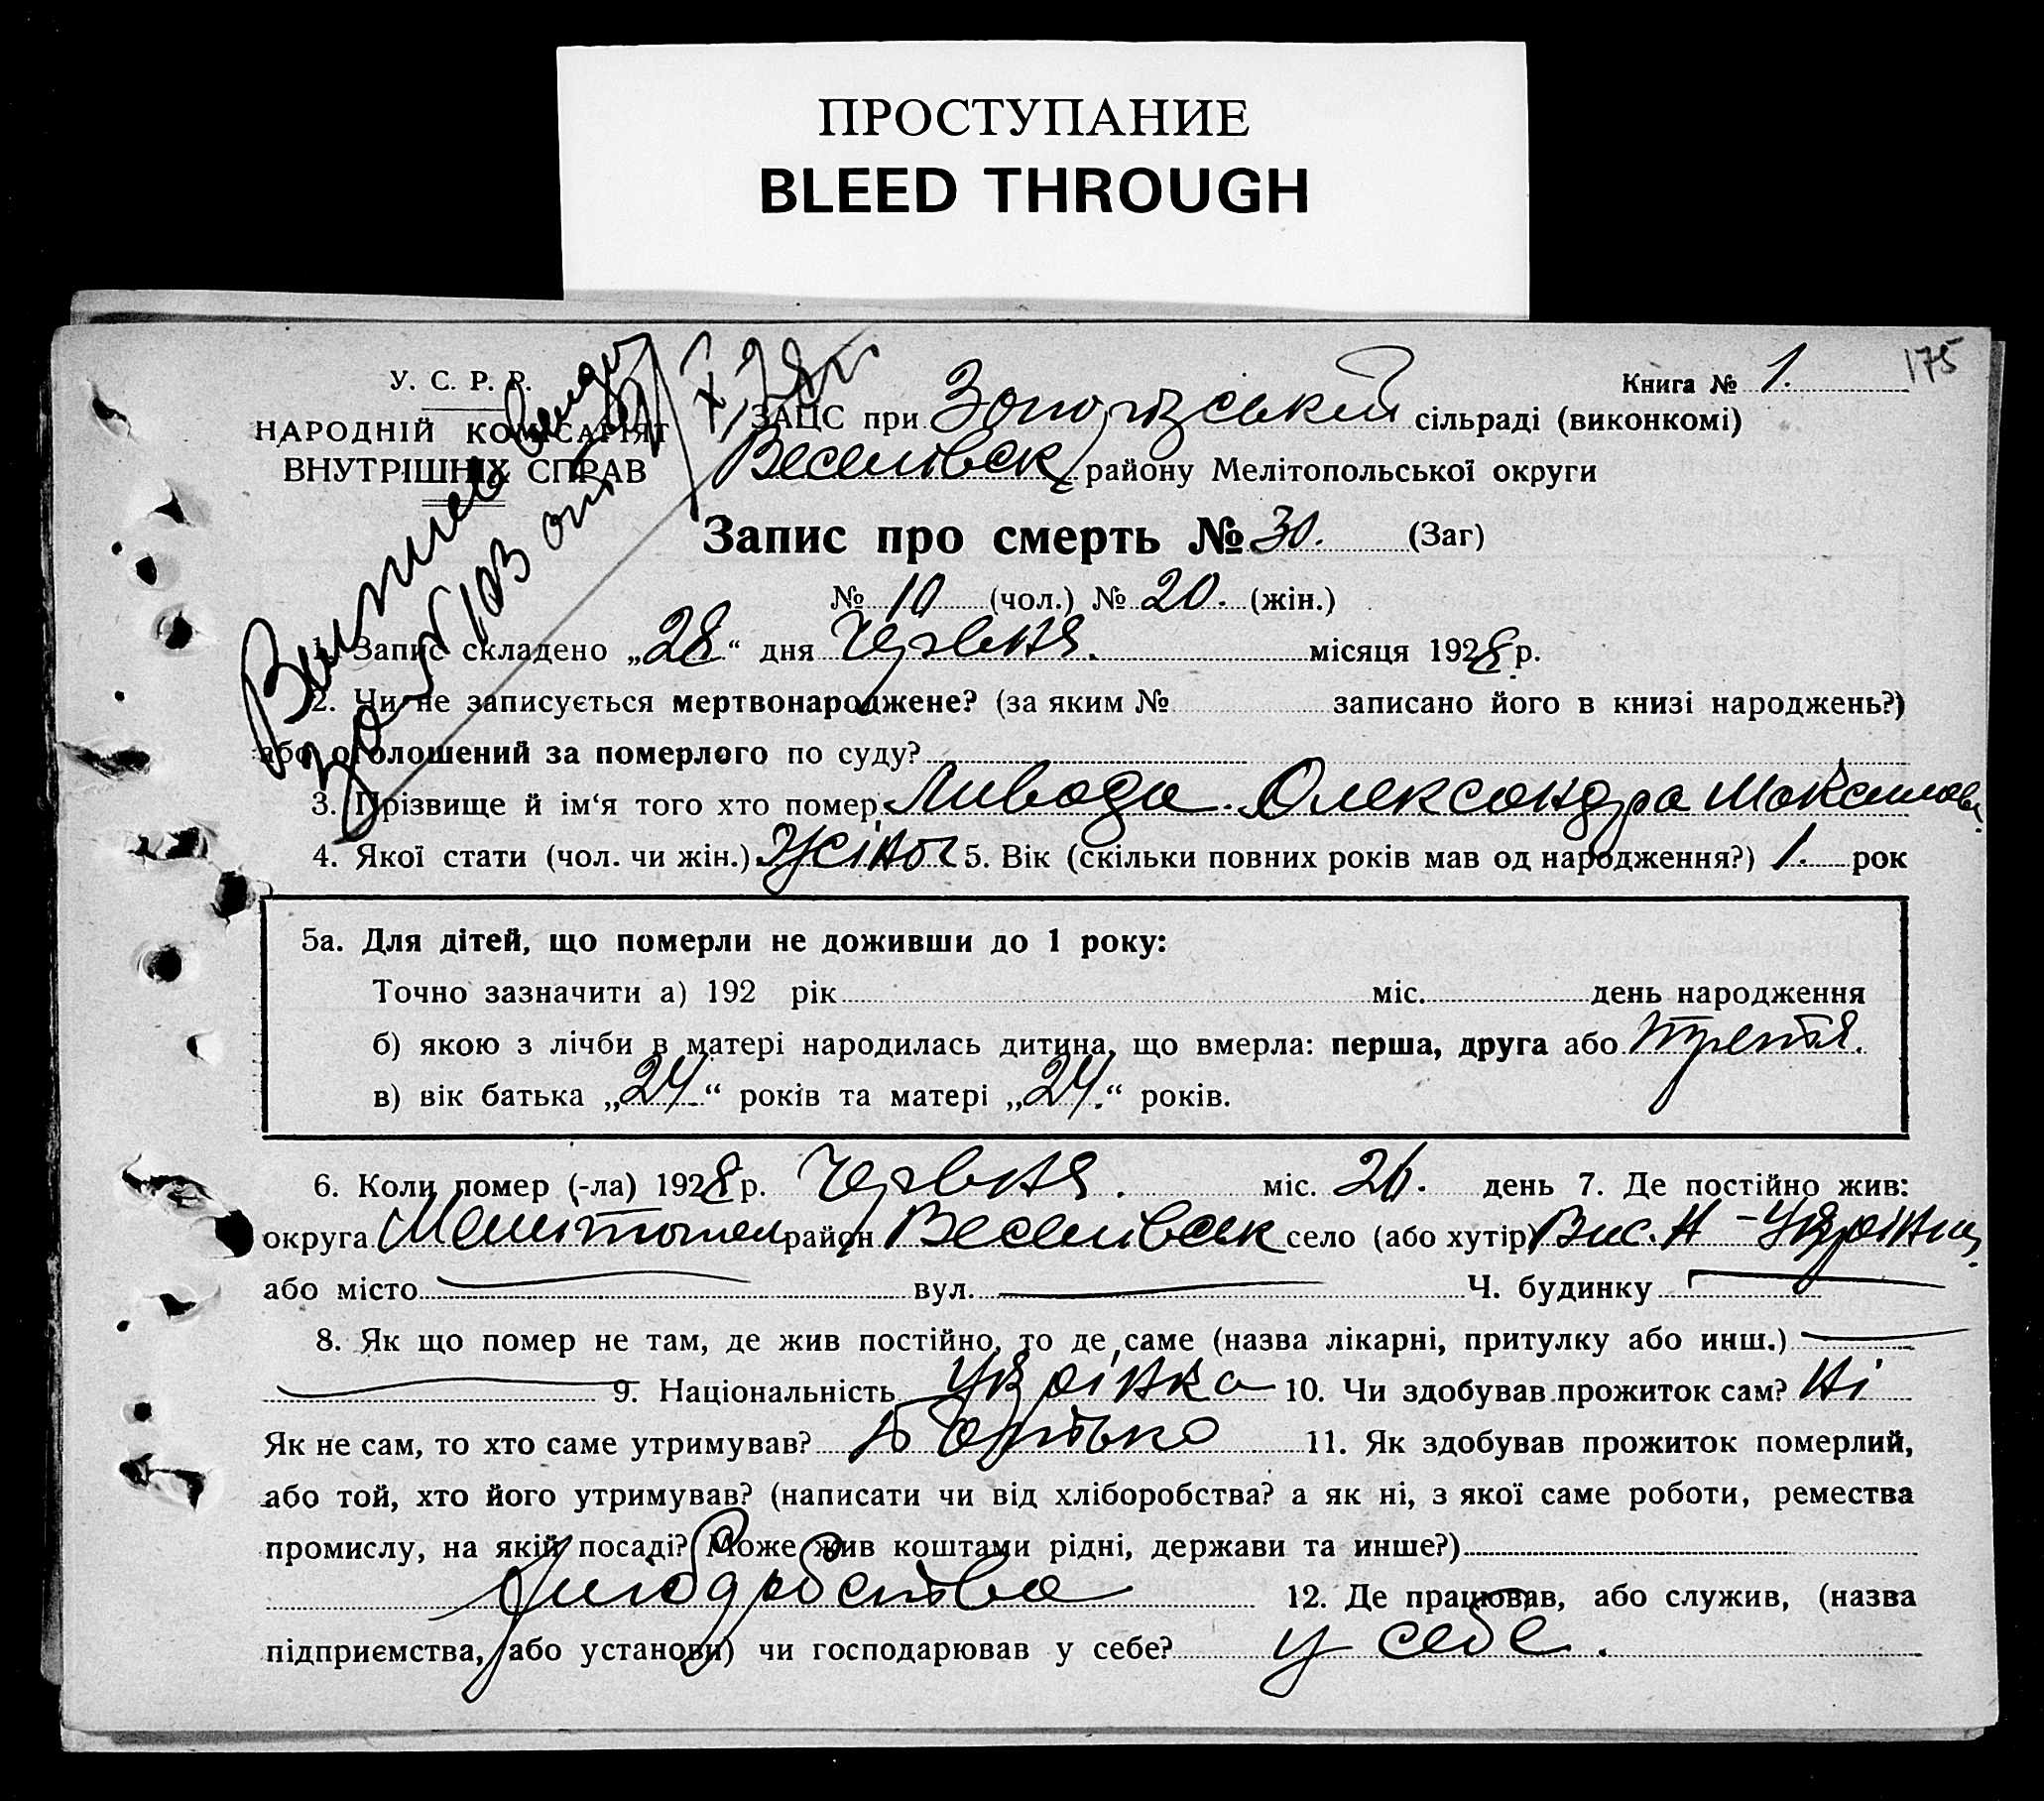 ПРОСТУПАНИЕ
BLEED THROUGH
175
У. С. Р. Р.
Книга № 1.
НАРОДНІЙ КОМІСАРІЯТ
ЗАЦС при сільраді (виконкомі)
ВНУТРІШНІХ СПРАВ
Веселівськ району Мелітопольської округи
Запис про смерть № 30. (Заг)
№ 10 (чол.) № 20. (жін.)
1. Запис складено „28“ дня Червня. місяця 1928 р.
2. Чи не записується мертвонароджене? (за яким № записано його в книзі народжень?)
або оголошений за померлого по суду?
3. Прізвище й ім‘я того хто помер Ливада Олександра Максимовн.
4. Якої стати (чол. чи жін.) Жіноч 5. Вік (скільки повних років мав од народження?) 1. рок
5а. Для дітей, що померли не доживши до 1 року:
Точно зазначити а) 192 рік міс. день народження
б) якою з лічби в матері народилась дитина, що вмерла: перша, друга або третя.
в) вік батька „24“ років та матері „24.“ років.
6. Коли помер (-ла) 1928 р. Червня. міс. 26. день 7. Де постійно жив:
округа Мелітопол район Веселівськ село (або хутір) Вис. Н-Українц.
або місто вул. Ч. будинку
8. Як що помер не там, де жив постійно, то де саме (назва лікарні, притулку або инш.)
9. Національність Українка 10. Чи здобував прожиток сам? Ні
Як не сам, то хто саме утримував? Батько 11. Як здобував прожиток померлий,
або той, хто його утримував? (написати чи від хліборобства? а як ні, з якої саме роботи, ремества
промислу, на якій посаді? Може жив коштами рідні, держави та инше?)
Хліборобства 12. Де працював, або служив, (назва
підприємства, або установи) чи господарював у себе? у себе.